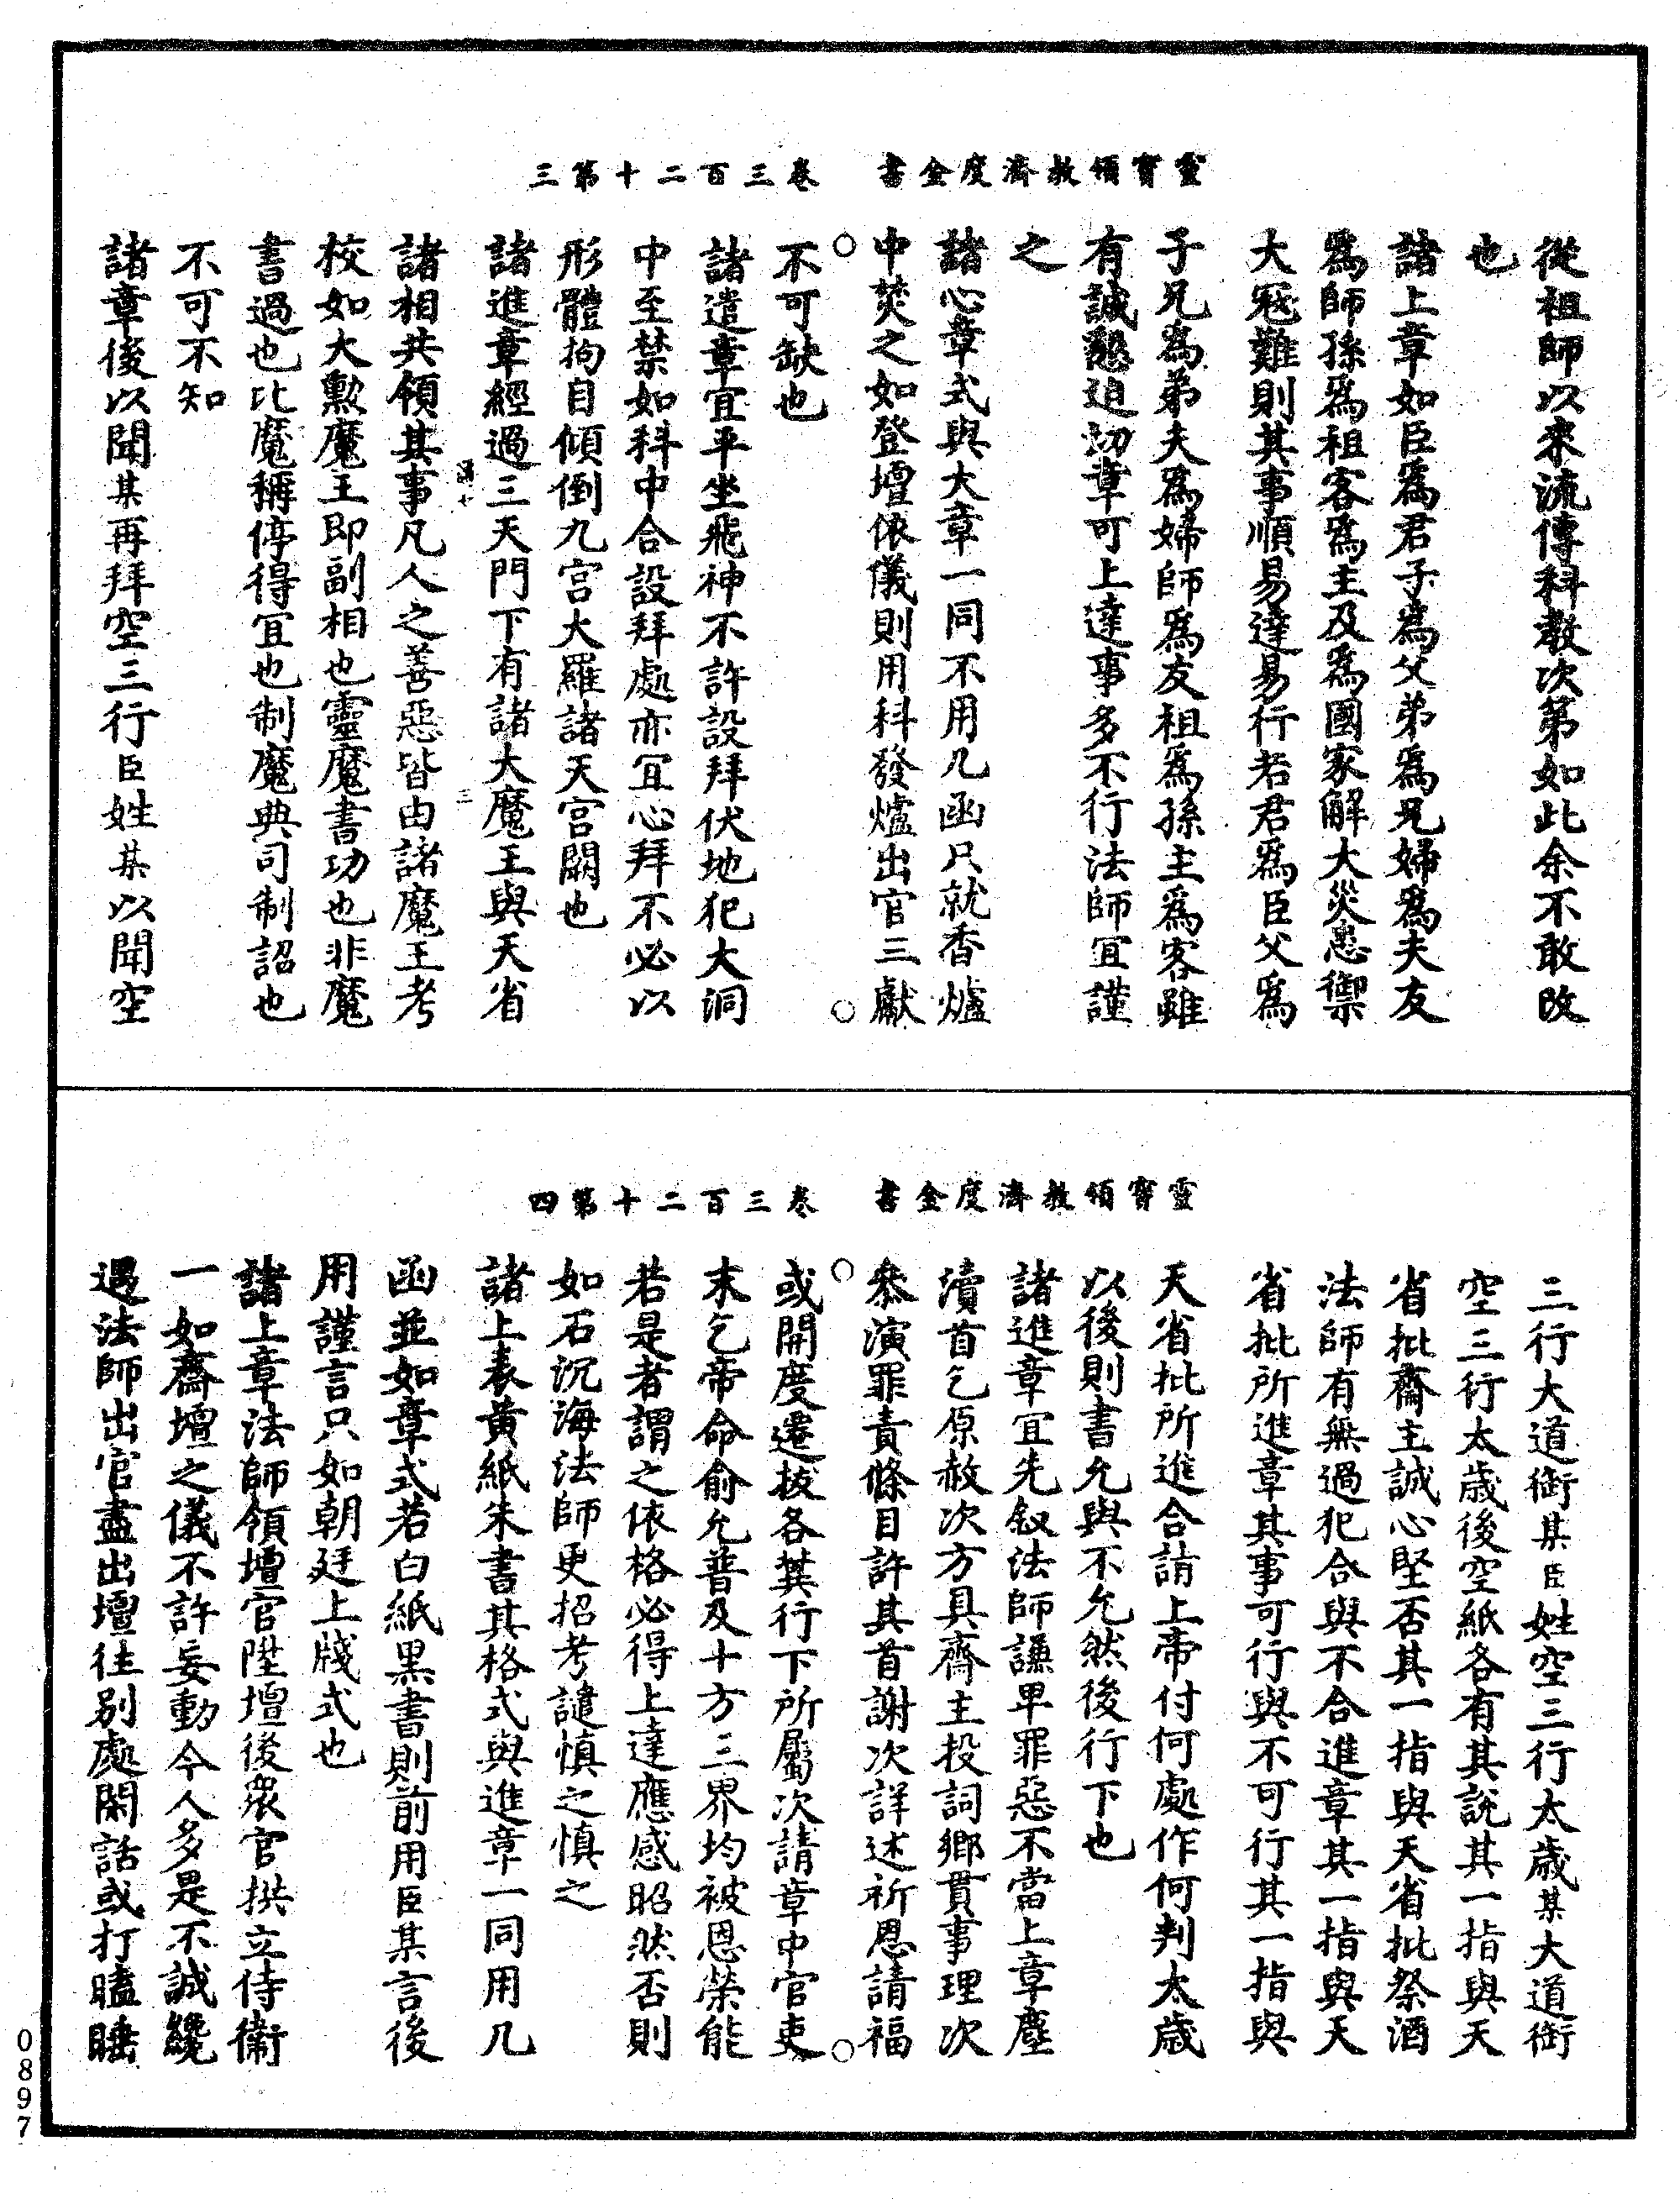 靈寶領教濟度金書　卷三百二十第三
從祖師以來流傳科教次第如此余不敢改
也
諸上章如臣爲君子爲父弟爲兄婦爲夫友
爲師孫爲祖客爲主及爲國家解大災患禦
大冦難則其事順易達易行若君爲臣父爲
子兄爲弟夫爲婦師爲友祖爲孫主爲客雖
有誠懇迫切章可上達事多不行法師宜謹
之
諸心章式與大章一同不用几函只就香爐
中焚之如登壇依儀則用科發爐出官三獻
不可缺也
諸遣章宜平坐飛神不許設拜伏地犯大洞
中至禁如科中合設拜處亦宜心拜不必以
形體拘自傾倒九宮大羅諸天宮闕也
諸進章經過三天門下有諸大魔王與天省
三
諸相共領其事凡人之善惡皆由諸魔王考
校如大勲魔王即副相也靈魔書功也非魔
書過也比魔稱停得宜也制魔典司制詔也
不可不知
諸章後以聞某再拜空三行臣姓某以聞空
靈寶領教濟度金書　卷三百二十第四
三行大道銜某臣姓空三行太歲某大道銜
空三行太歲後空紙各有其說其一指與天
省批齋主誠心堅否其一指與天省批祭酒
法師有無過犯合與不合進章其一指與天
省批所進章其事可行與不可行其一指與
天省批所進合請上帝付何處作何判太歲
以後則書允與不允然後行下也
諸進章宜先叙法師謙卑罪惡不當上章塵
瀆首乞原赦次方具齋主投詞鄉貫事理次
叅演罪責條目許其首謝次詳述祈恩請福
或開度遷拔各冀行下所屬次請章中官吏
末乞帝命俞允普及十方三界均被恩榮能
若是者謂之依格必得上達應感昭然否則
如石沉海法師更招考譴慎之慎之
諸上表黃紙朱書其格式與進章一同用几
函並如章式若白紙黑書則前用臣某言後
用謹言只如朝廷上牋式也
諸上章法師領壇官陞壇後衆官拱立侍衞
一如齋壇之儀不許妄動今人多是不誠纔
遇法師出官盡出壇往別處閑話或打瞌睡
0897